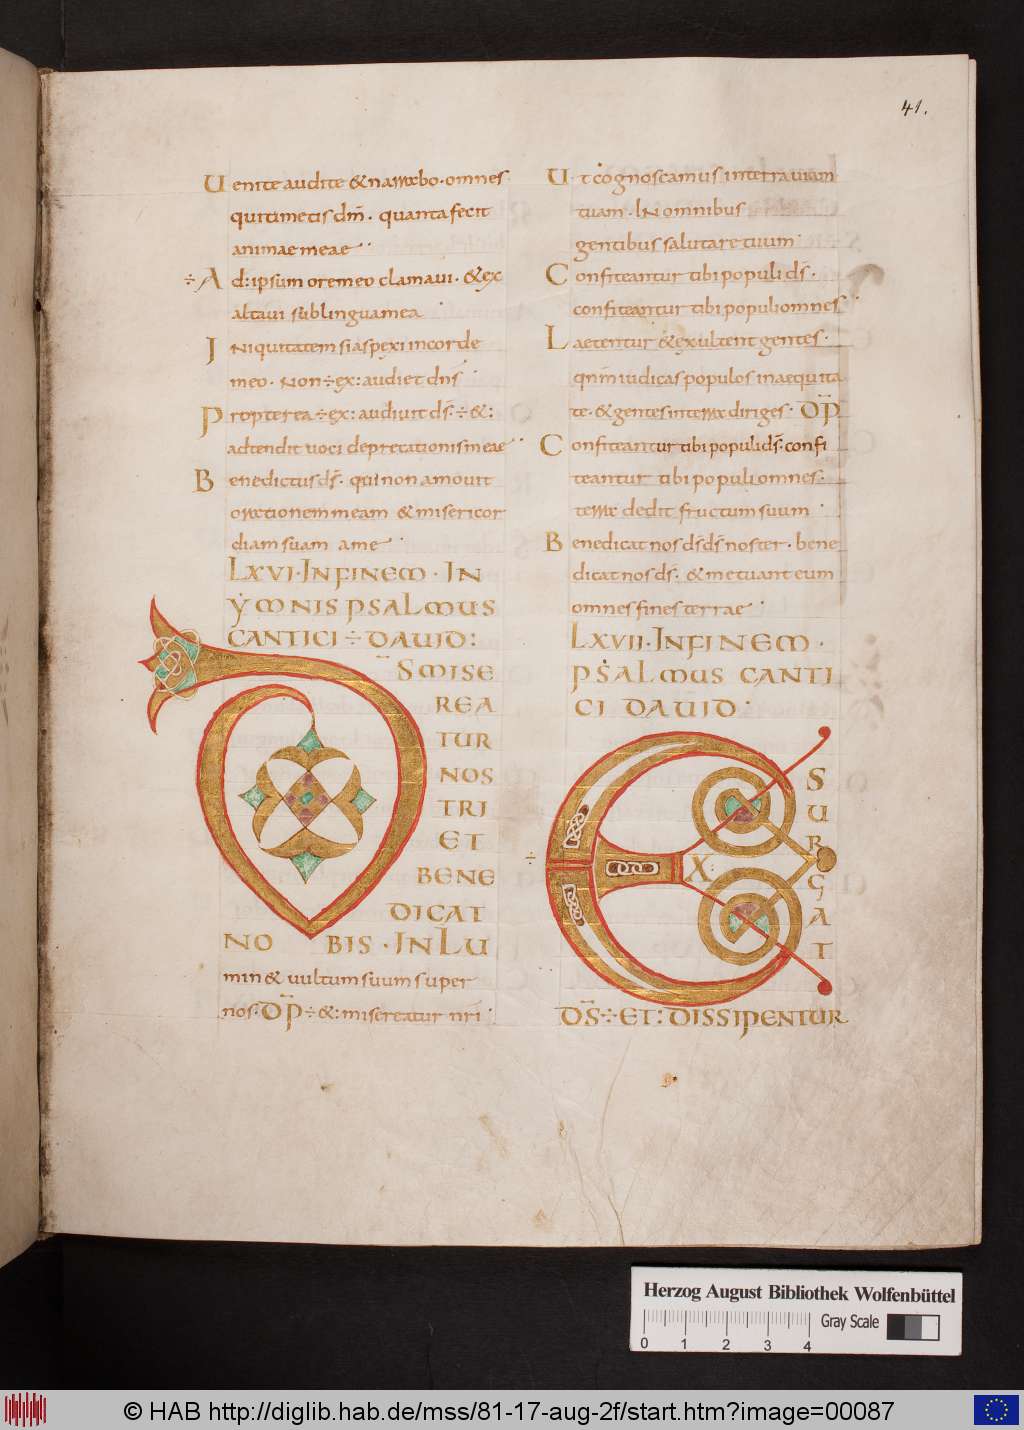 41.
Uenite audite & narrabo · omnes
qui timetis dm̄ · quanta fecit
animae meae
÷ Ad: ipsum ore meo clamaui · & ex
altaui sub lingua mea
INiquitatem si aspexi in corde
meo · Non ÷ ex: audiet dn̄s
Propterea ÷ ex: audiuit ds̄ · ÷ &:
adtendit uoci deprecationis meae
Benedictus ds̄ · qui non amouit
orationem meam & misericor
diam suam a me
LXVI · IN FINEM · IN
YMNIS PSALMUS
CANTICI ÷ DAUID:
DS̄ MISE
REA
TUR
NOS
TRI
ET
BENE
DICAT
NO BIS · INLU
min & uultum suum super
nos · DP̄ ÷ &: misereatur nr̄i
Ut cognoscamus in terra uiam
tuam · IN omnibus
gentibus salutare tuum
Confiteantur tibi populi ds̄ ·
confiteantur tibi populi omnes
Laetentur & exultent gentes ·
qn̄m iudicas populos in aequita
te · & gentes in terra diriges · DP̄
Confiteantur tibi populi ds̄ · confi
teantur tibi populi omnes ·
terra dedit fructum suum
Benedicat nos ds̄ ds̄ noster · bene
dicat nos ds̄ · & metuant eum
omnes fines terrae
LXVII · IN FINEM ·
PSALMUS CANTI
CI DAUID
÷ EX: SURGAT
DS̄ ÷ ET: DISSIPENTUR
Herzog August Bibliothek Wolfenbüttel
Gray Scale
0 1 2 3 4
© HAB http://diglib.hab.de/mss/81-17-aug-2f/start.htm?image=00087